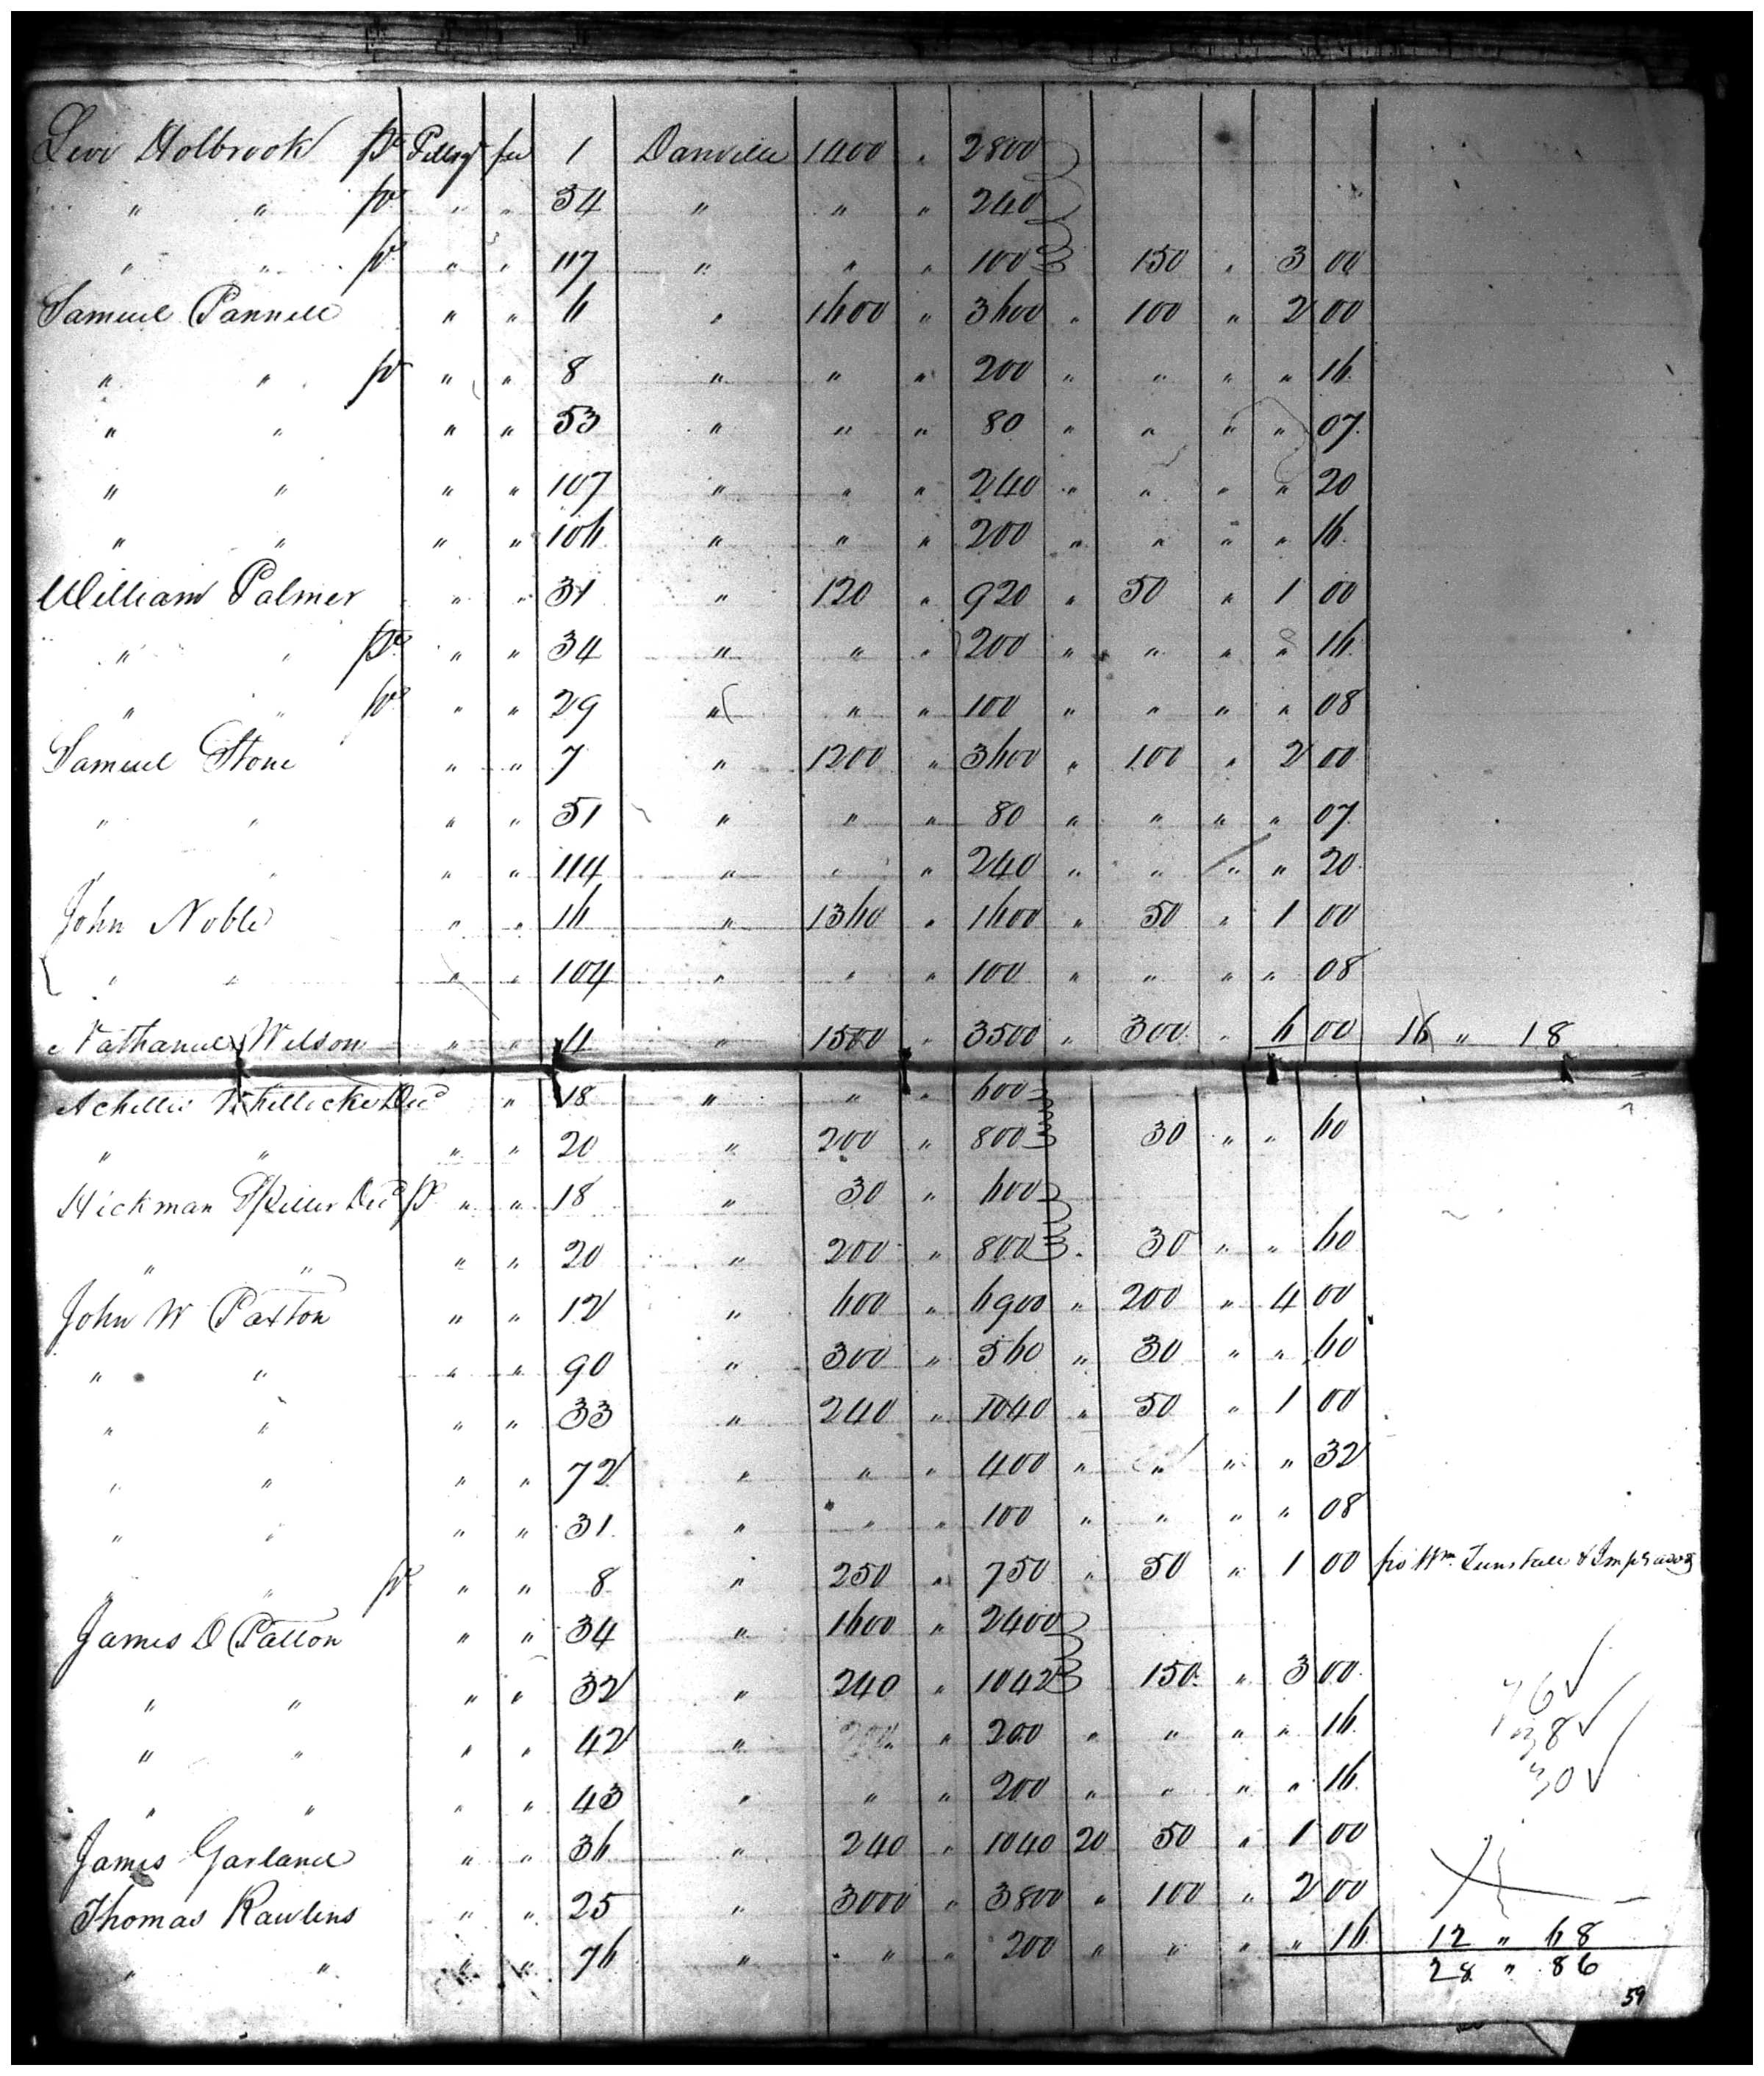 Levi Holbrook pr Pittsyl fee 1 Danville 1400 " 2800
" " pr " " 34 " " " 240
" " pr " " 117 " " " 100 150 " 3 00
Samuel Pannill " " 6 " 1600 " 3600 " 100 " 2 00
" " pr " " 8 " " " 200 " " " " 16
" " " " 53 " " " 80 " " " " 07
" " " " 107 " " " 240 " " " " 20
" " " " 106 " " " 200 " " " " 16
William Palmer " " 31 " 120 " 920 " 50 " 1 00
" " pr " " 34 " " " 200 " " " " 16
" " pr " " 29 " " " 100 " " " " 08
Samuel Stone " " 7 " 1200 " 3600 " 100 " 2 00
" " " " 51 " " " 80 " " " " 07
" " " " 114 " " " 240 " " " " 20
John Noble " " 16 " 1360 " 1600 " 50 " 1 00
" " " " 104 " " " 100 " " " " 08
Nathaniel Wilson " " 4 " 1500 " 3500 " 300 " 6 00 16 " 18
Achilles Decd " 18 " " " 600
" " " " 20 " 200 " 800 30 " " 60
Hickman Spiller Decd pr " " 18 " 30 " 600
" " " " 20 " 200 " 800 30 " " 60
John W Paxton " " 12 " 600 " 6900 " 200 " 4 00
" " " " 90 " 300 " 560 " 30 " " 60
" " " " 33 " 240 " 1040 " 50 " 1 00
" " " " 72 " " " 400 " " " " 32
" " " " 31 " " " 100 " " " " 08
" " pr " " 8 " 250 " 750 " 50 " 1 00 fro Wm Tunstall & Imps
James D Patton " " 34 " 1600 " 2400
" " " " 32 " 240 " 1042 150 " 3 00
" " " " 42 " " 200 " " " " 16
" " " " 43 " " " 200 " " " " 16
James Garland " " 36 " 240 " 1040 20 50 " 1 00
Thomas Rawlins " " 25 " 3000 " 3800 " 100 " 2 00
" " " " 76 " " " 200 " " " " 16 12 " 68
28 " 86
59